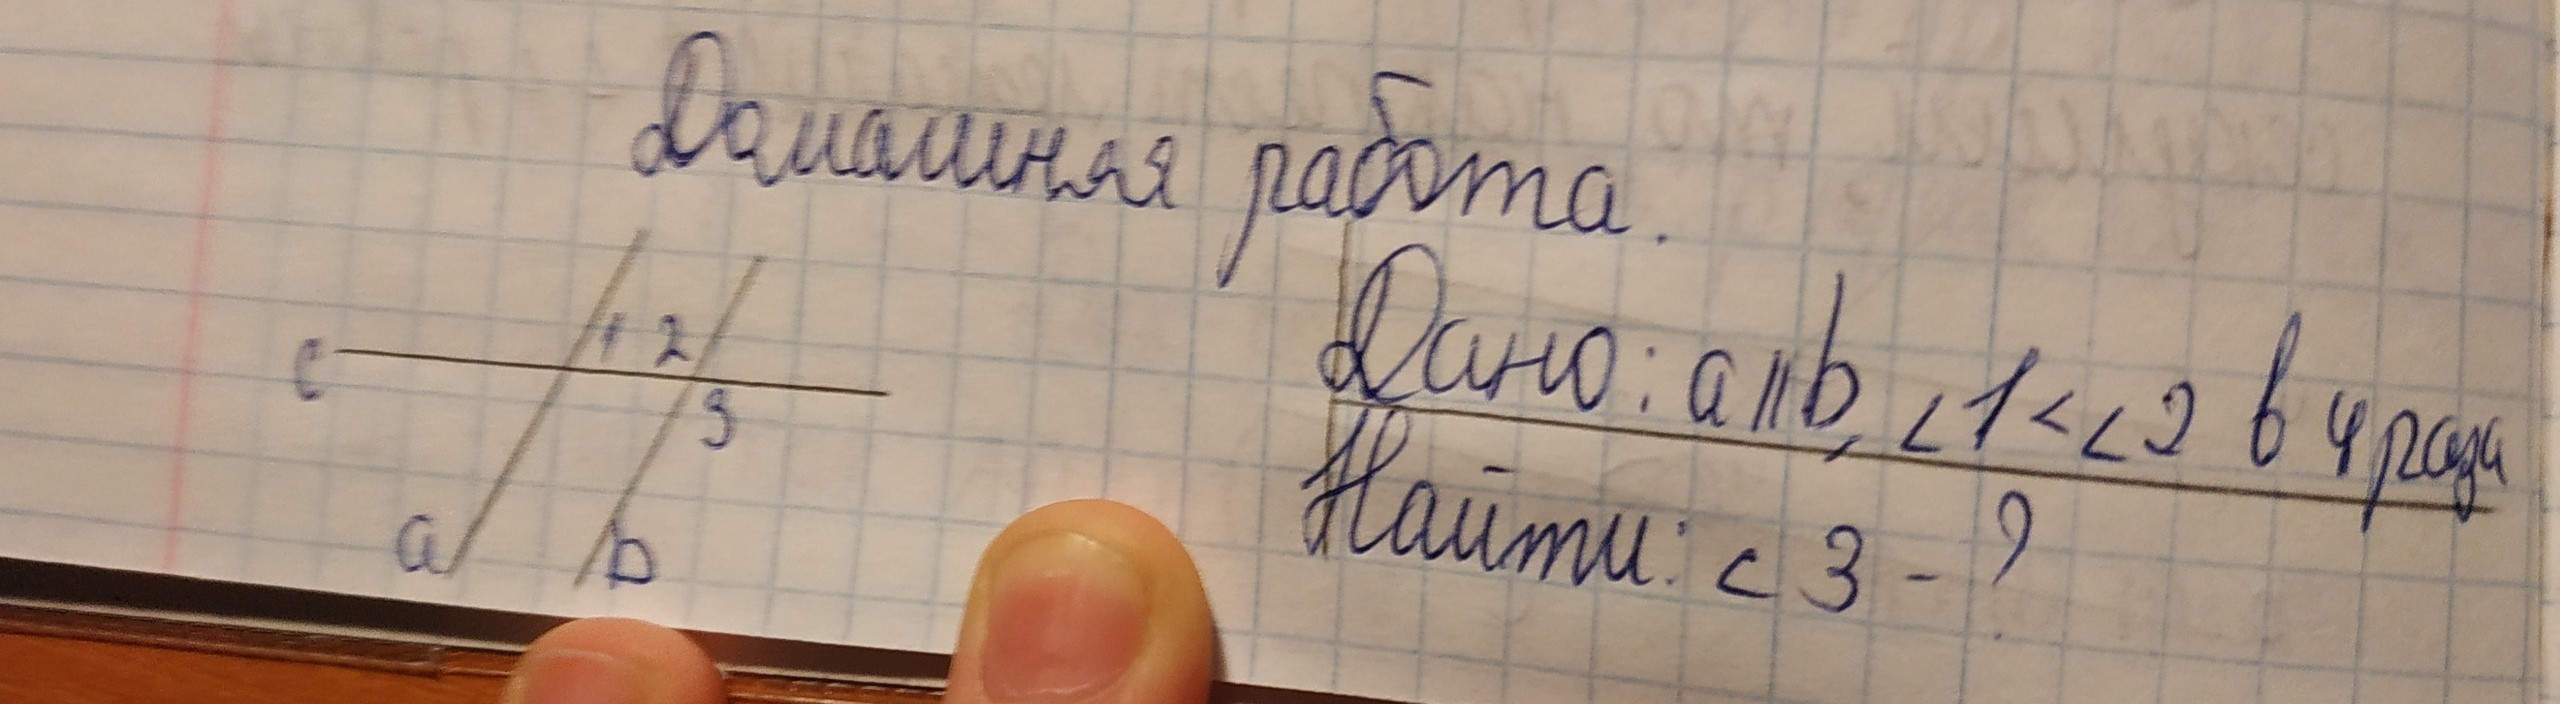 Домашняя работа.
c
1 2
3
a
b
Дано: a || b, <1 < <2 в 4 раза
Найти: <3 - ?